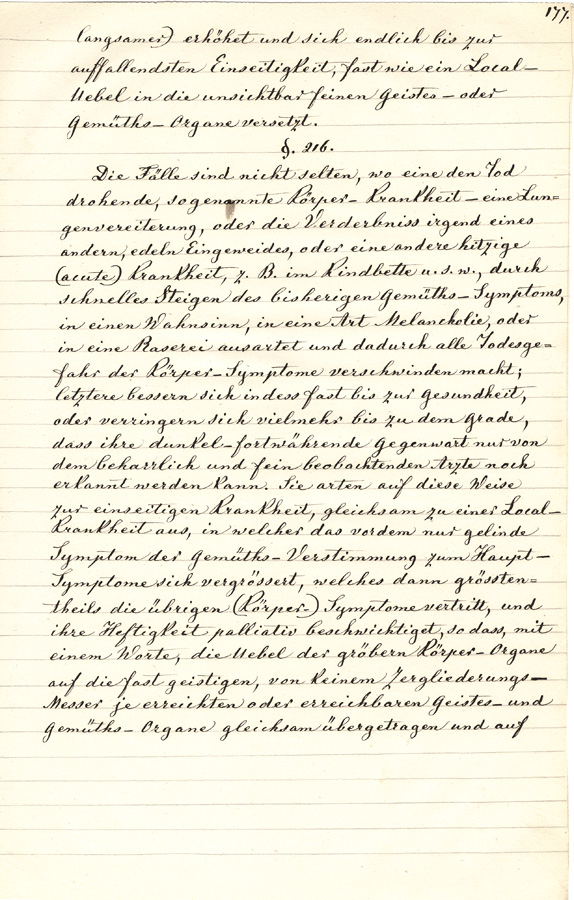 177.
langsamer) erhöhet und sich endlich bis zur
auffallendsten Einseitigkeit, fast wie ein Local-
Uebel in die unsichtbar feinen Geistes- oder
Gemüths- Organe versetzt.
§. 216.
Die Fälle sind nicht selten, wo eine den Tod
drohende, sogenannte Körper- Krankheit - eine Lun=
genvereiterung, oder die Verderbniss irgend eines
andern, edeln Eingeweides, oder eine andere hitzige
(acute) Krankheit, z. B. im Kindbette u. s. w., durch
schnelles Steigen des bisherigen Gemüths- Symptoms,
in einen Wahnsinn, in eine Art Melancholie, oder
in eine Raserei ausartet und dadurch alle Todesge=
fahr der Körper- Symptome verschwinden macht;
letztere bessern sich indess fast bis zur Gesundheit,
oder verringern sich vielmehr bis zu dem Grade,
dass ihre dunkel-fortwährende Gegenwart nur von
dem beharrlich und fein beobachtenden Arzte noch
erkannt werden kann. Sie arten auf diese Weise
zur einseitigen Krankheit, gleichsam zu einer Local-
Krankheit aus, in welcher das vordem nur gelinde
Symptom der Gemüths- Verstimmung zum Haupt-
Symptome sich vergrössert, welches dann grössten=
theils die übrigen (Körper-) Symptome vertritt, und
ihre Heftigkeit palliativ beschwichtiget, so dass, mit
einem Worte, die Uebel der gröbern Körper- Organe
auf die fast geistigen, von keinem Zergliederungs-
Messer je erreichten oder erreichbaren Geistes- und
Gemüths- Organe gleichsam übergetragen und auf